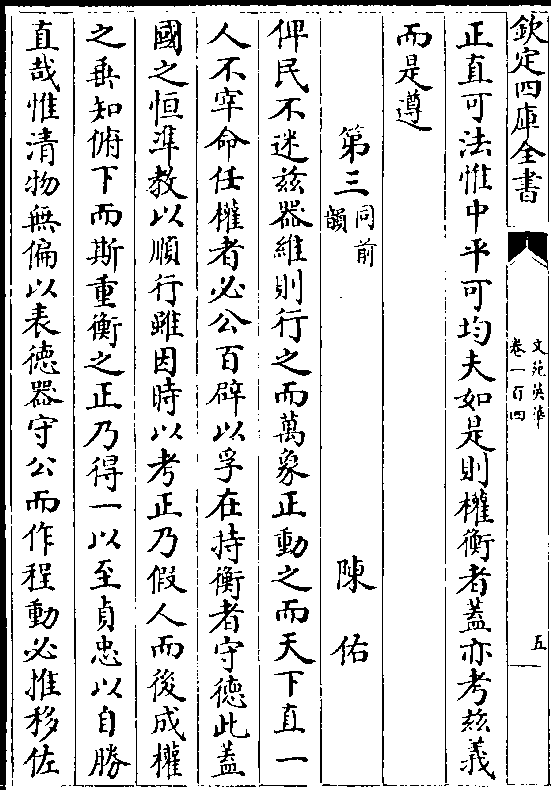 欽定四庫全書
文苑英華
卷一百四
五
正直可法惟中平可均夫如是則權衡者蓋亦考茲義
而是遵
第三同前韻
陳佑
俾民不迷茲器維則行之而萬象正動之而天下直一
人不宰命任權者必公百辟以孚在持衡者守德此蓋
國之恒準教以順行雖因時以考正乃假人而後成權
之垂知俯下而斯重衡之正乃得一以至貞忠以自勝
直哉惟清物無偏以表德器守公而作程動必推移佐